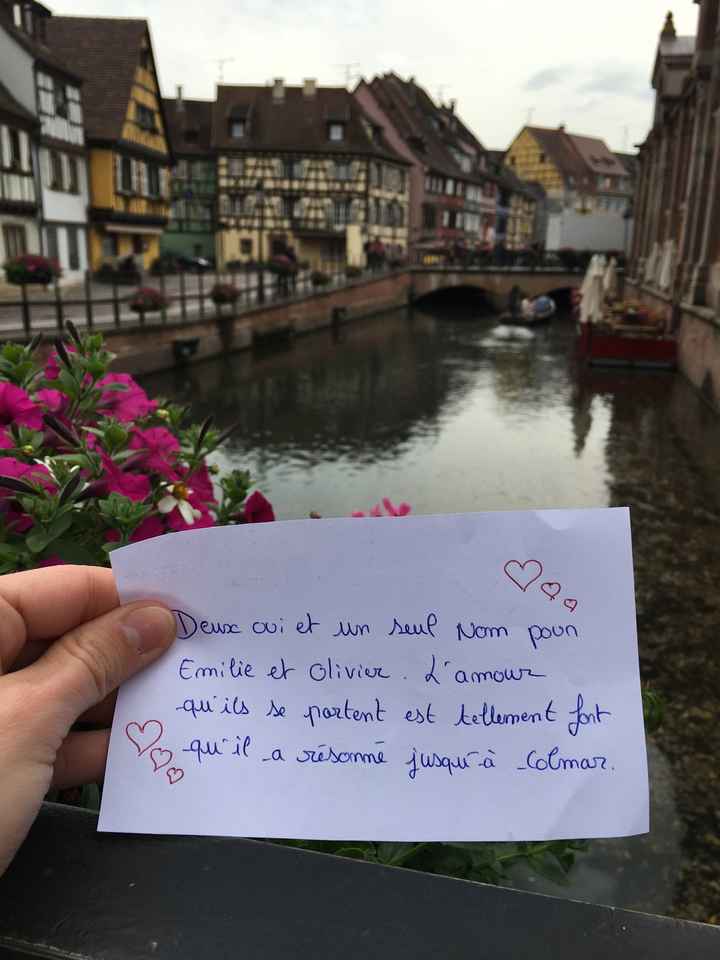 Deux oui et un seul Nom pour
Emilie et Olivier. L'amour
qu'ils se portent est tellement fort
qu'il a résonné jusqu'à Colmar.